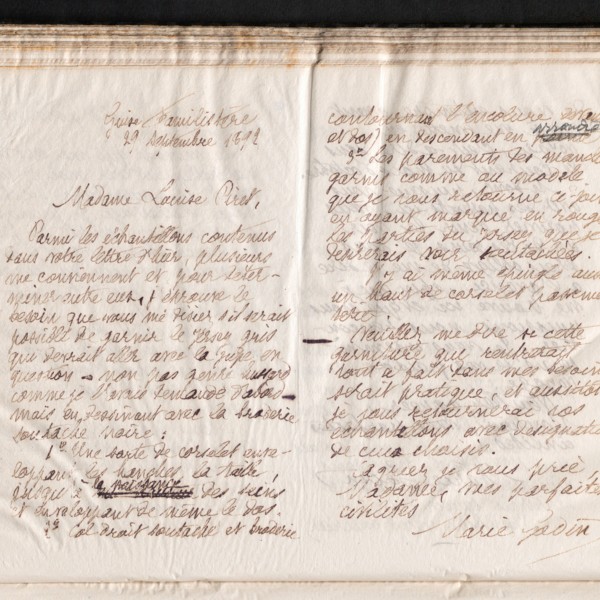 Guise Familistère
29 septembre 1892
Madame Louise Piret,
Parmi les échantillons contenus
dans votre lettre d'hier, plusieurs
me conviennent et pour déter-
miner entre eux, j'éprouve le
besoin que vous me disiez s'il serait
possible de garnir le jersey gris
qui devrait aller avec la jupe en
question - non pas genre hussard
comme je l'avais demandé d'abord -
mais en dessinant avec la broderie
soutache noire:
1º Une sorte de corselet enve-
loppant les hanches, la taille
jusqu'à des seins
et enveloppant de même le dos.
2º Col droit soutaché et broderie
contournant l'encolure devant
et dos) en descendant en arrondie
3º Les parements des manches
garnis comme au modèle
que je vous retourne ci-joint
en ayant marqué en rouge
les parties du jersey que je
désirerais voir soutachées.
J'y ai même épinglé
un haut de corselet
Veuillez me dire si cette
garniture que rentrerait
tout à fait dans mes besoins
serait pratique, et aussitôt
je vous retournerai vos
échantillons avec désignation
de ceux choisis.
Agréez je vous prie,
Madame, mes parfaites
civilités
Marie Godin